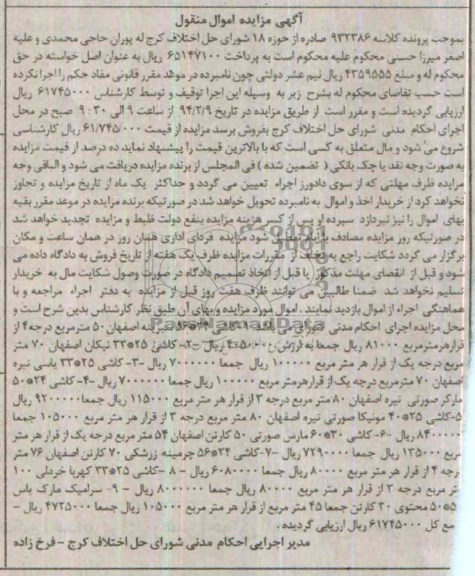 آگهی مزایده اموال منقول
بموجب پرونده کلاسه ۹۳۲۳۸۶ صادره از حوزه ۱۸ شورای حل اختلاف کرج له پوران حاجی محمدی و علیه
اصغر میرزا حسنی محکوم علیه محکوم است به پرداخت ۶۵۱۴۷۱۰۰ ریال به عنوان اصل خواسته در حق
محکوم له و مبلغ ۴۳۵۹۵۵۵ ریال نیم عشر دولتی چون نامبرده در موعد مقرر قانونی مفاد حکم را اجرا نکرده
است حسب تقاضای محکوم له بشرح زیر به وسیله این اجرا توقیف و توسط کارشناس ۶۱۷۴۵۰۰۰ ریال
ارزیابی گردیده است و مقرر است از طریق مزایده در تاریخ ۹۴/۳/۹ از ساعت ۹ الی ۹:۳۰ صبح در محل
اجرای احکام مدنی شورای حل اختلاف کرج بفروش برسد مزایده از قیمت ۶۱/۷۴۵/۰۰۰ ریال کارشناسی
شروع می شود و مال متعلق به کسی است که با بالاترین قیمت را پیشنهاد نماید ده درصد از قیمت مزایده
به صورت وجه نقد یا چک بانکی ( تضمین شده ) فی المجلس از برنده مزایده دریافت می شود و الباقی وجه
مزایده ظرف مهلتی که از سوی دادورز اجراء تعیین می گردد و حداکثر یک ماه از تاریخ مزایده و تجاوز
نخواهد کرد از خریدار اخذ و اموال به نامبرده تحویل خواهد شد در صورتیکه برنده مزایده در موعد مقرر بقیه
بهای اموال را نیز نپردازد سپرده او پس از کسر هزینه مزایده بنفع دولت ضبط و مزایده تجدید خواهد شد
در صورتیکه روز مزایده مصادف با شود مزایده فردای اداری همان روز در همان ساعت و مکان
برگزار می گردد شکایت راجع به تخلف از مقررات مزایده ظرف یک هفته از تاریخ فروش به دادگاه داده می
شود و قبل از انقضای مهلت مذکور یا قبل از اتخاذ تصمیم دادگاه در صورت وصول شکایت مال به خریدار
تسلیم نخواهد شد ضمنا طالبین می توانند ظرف هفت روز قبل از مزایده به دفتر اجراء مراجعه و با
هماهنگی اجراء از اموال بازدید نمایند. اموال مورد مزایده و بهای آن طبق نظر کارشناس بدین شرح است و
محل مزایده اجرای احکام مدنی شورای اصفهان ۵۰ مترمربع درجه ۴ از
قرار هرمترمربع ۸۱۰۰۰ ریال جمعا به ارزش ۴۰۵۰۰۰۰ ریال -۲- کاشی ۲۵*۳۳ نیکان اصفهان ۷۰ متر
مربع درجه یک از قرار هر متر مربع ۱۰۰۰۰۰ ریال جمعا ۷۰۰۰۰۰۰ ریال -۳- کاشی ۲۵*۳۳ یاسی تیره
اصفهان ۷۰ مترمربع درجه یک از قرار هرمتر مربع ۱۰۰۰۰۰ ریال جمعا ۷۰۰۰۰۰۰ ریال -۴- کاشی ۲۴*۵۰
مارکر صورتی تیره اصفهان ۸۰ متر مربع درجه ۳ از قرار هر متر مربع ۱۱۵۰۰۰ ریال جمعا ۹۲۰۰۰۰۰ ریال
۵- کاشی ۲۵*۴۰ مونیکا صورتی تیره اصفهان ۸۰ متر مربع درجه ۳ از قرار هر متر مربع ۱۰۵۰۰۰ جمعا
۸۴۰۰۰۰۰ ریال -۶- کاشی ۳۰*۶۰ مارس صورتی ۵۰ کارتن اصفهان ۵۴ متر مربع درجه یک از قرار هر متر
مربع ۱۳۵۰۰۰ ریال جمعا ۷۲۹۰۰۰۰ ریال -۷- کاشی ۲۴*۵۶ جرمینه زرشکی ۷۰ کارتن اصفهان ۷۶ متر
درجه ۴ از قرار هر متر مربع ۸۰۰۰۰ ریال جمعا ۶۰۸۰۰۰۰ ریال - ۸- کاشی ۲۵*۳۳ کهربا خردلی ۱۰۰
متر مربع درجه ۳ از قرار هر متر مربع ۸۰۰۰۰ ریال جمعا ۸۰۰۰۰۰۰ ریال - ۹- سرامیک مارک یاس
۵۰*۵۰ محتوی ۳۰ کارتن جمعا ۴۵ متر مربع از قرار هر متر مربع ۱۰۵۰۰۰ ریال جمعا ۴۷۲۵۰۰۰ ریال -
جمع کل ۶۱۷۴۵۰۰۰ ریال ارزیابی گردیده.
مدیر اجرایی احکام مدنی شورای حل اختلاف کرج - فرخ زاده